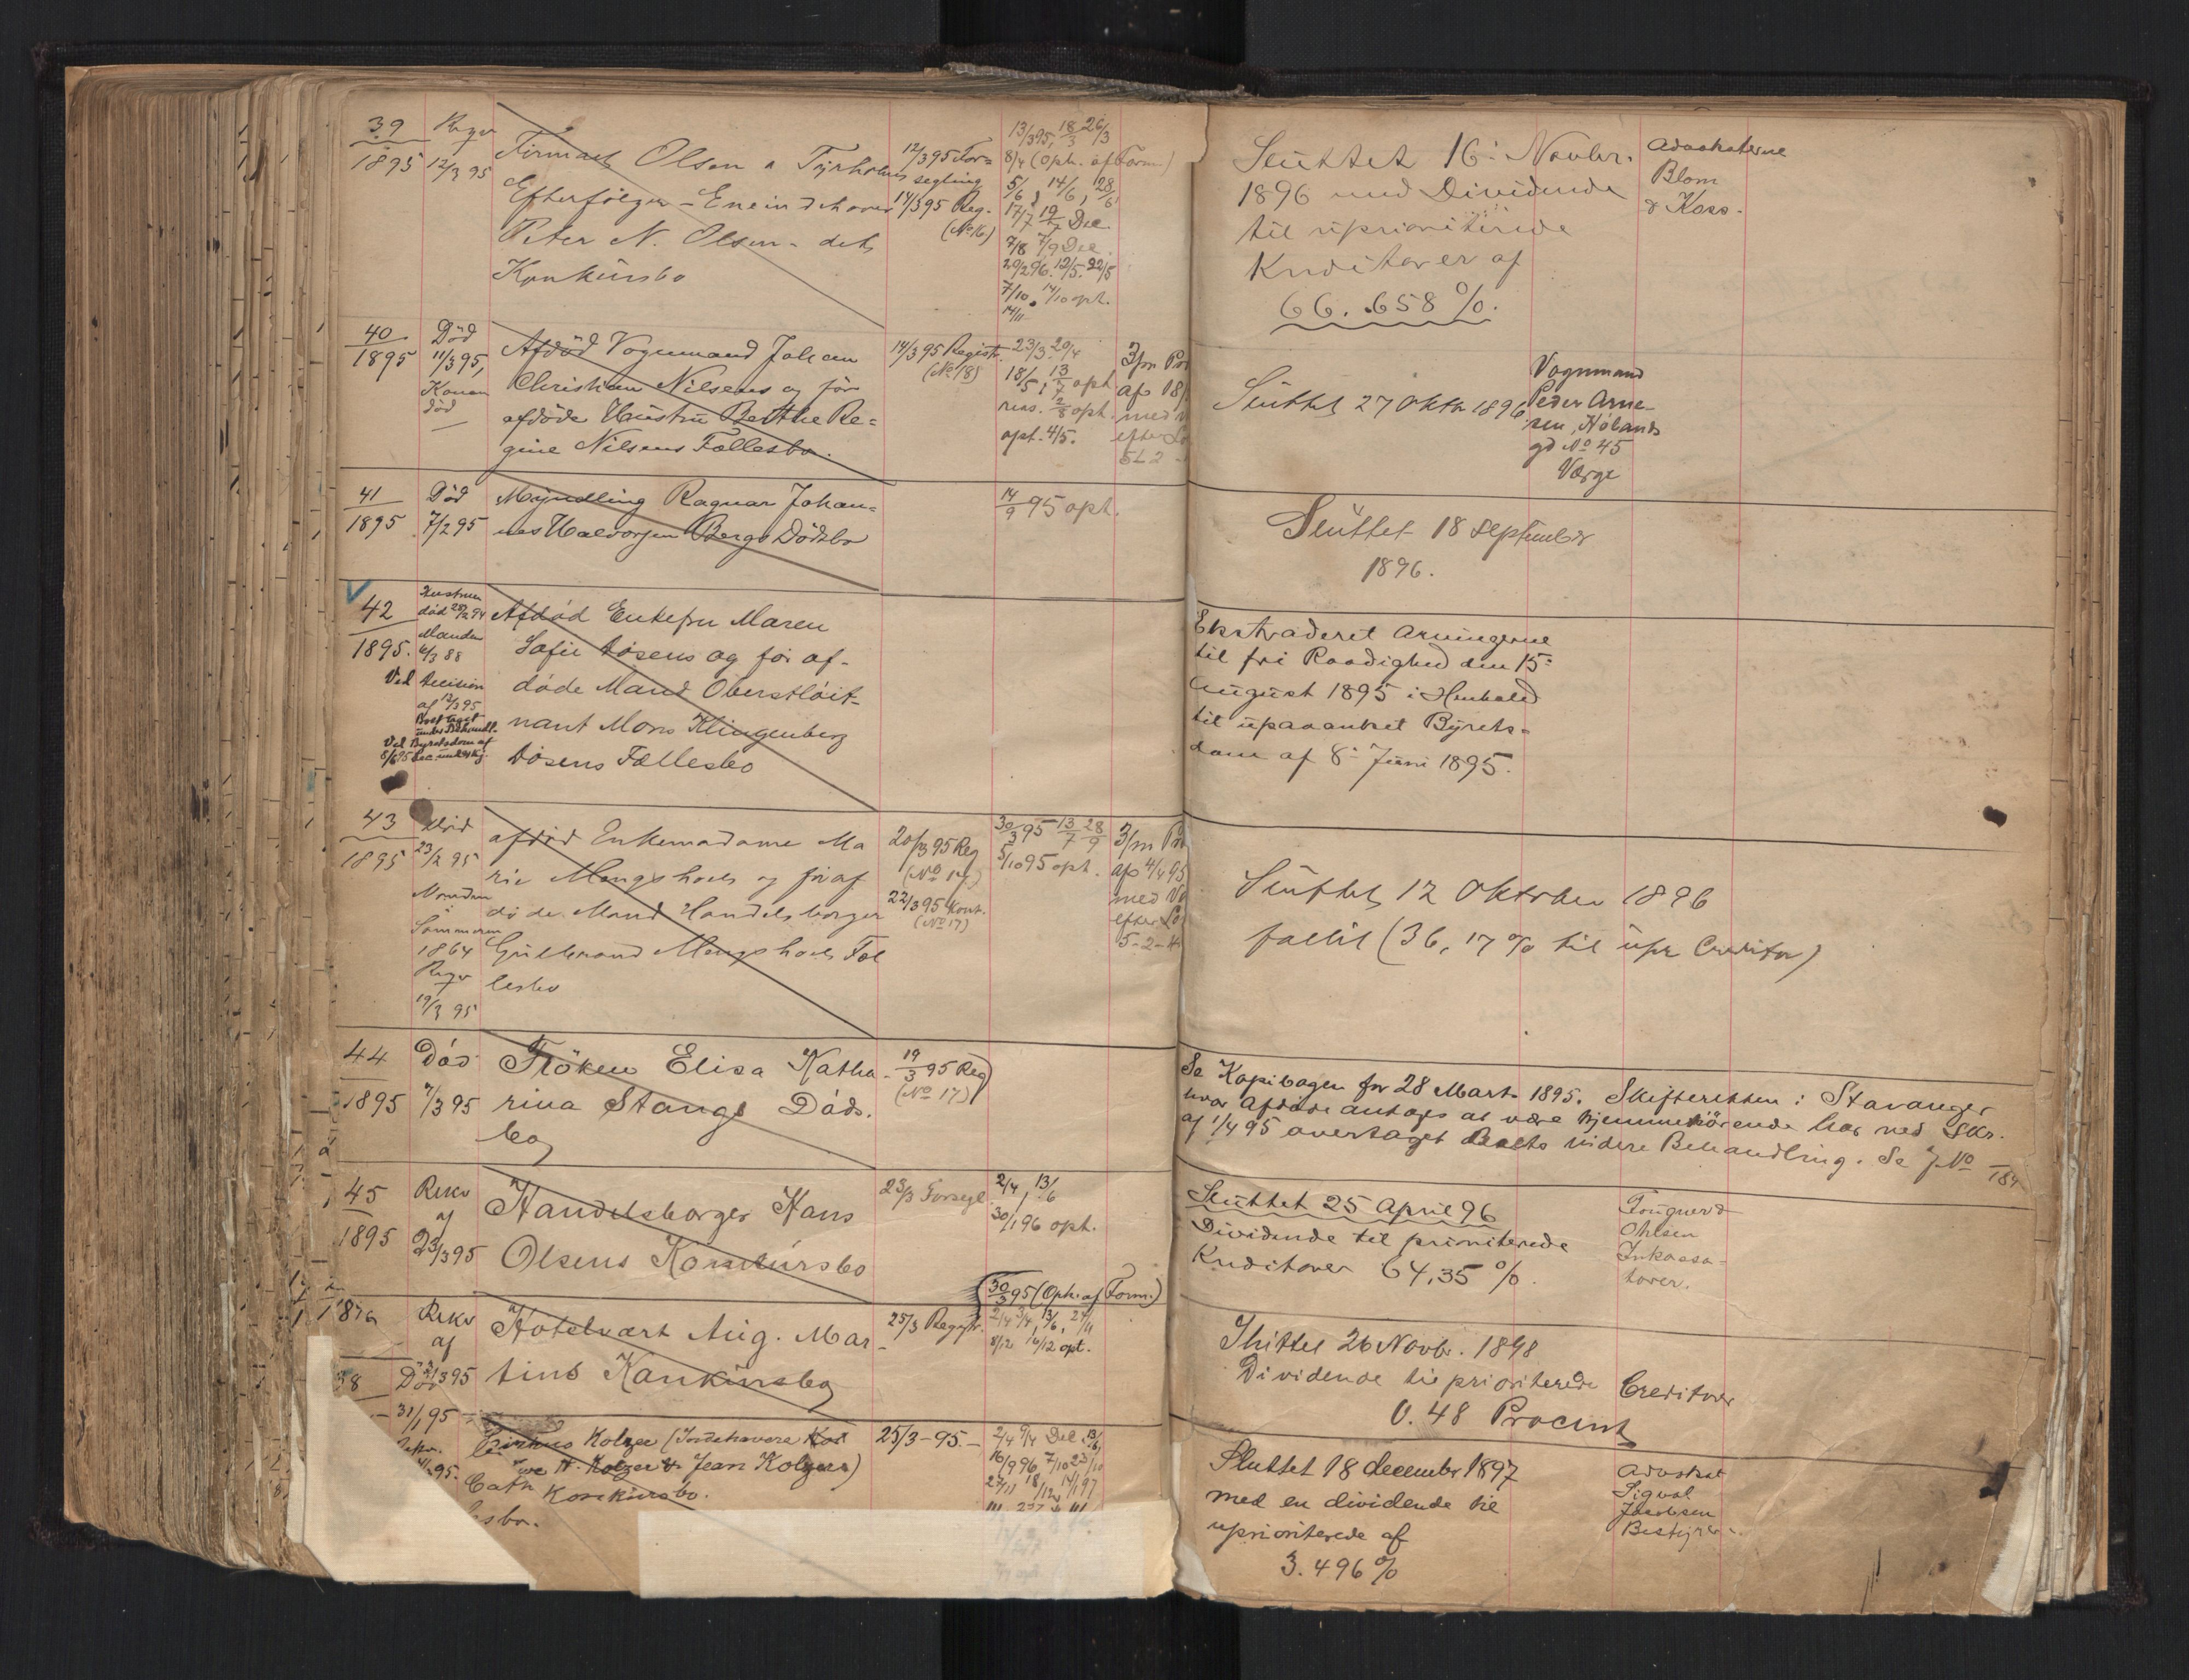 39
1895
12/3 95
Firmaet Olsen & Tyrholms
Efterfölger - Eneindehaver
Peter N. Olsen - dets
Konkürsbo
12/3 95 For=
segling
14/3 95 Reg.
(No 16)
13/3 95, 18/3 26/3
8/4 (Oph. af Form.)
5/6, 14/6, 28/6
17/7 19/7 Dec.
7/8 7/9 Dec.
29/2 96. 12/5. 22/5
7/10. 14/10 opt.
14/11
Slüttet 16: Novbr.
1896 med Dividende
til üprioriterede
Kreditorer af
66.658 %.
Advokaterne
Blom
& Koss.
40
1895
Död
11/3 95,
Konen
död
Afdöd Vognmand Johan
Christian Nilsens og för
afdöde Hüstrü Berthe Re=
gine Nilsens Fællesbo.
14/3 95 Registr.
(No 18)
23/3. 20/4
18/5, 13/7 opt
2/8 opt.
opt. 4/5.
3/m Pro
af 18/
med
efter Lo
5 L 2
Slüttet 27 Oktbr 1896
Vognmand
Peder Arne-
sen, Hölands
gd No 45
Værge
41
1895
Död
7/2 95
Myndling Ragnar Johan=
nes Halvorsen Bergs Dödsbo
14/9 95 opt.
Slüttet 18 September
1896.
42
1895.
Hustruen
död 25/2 94
Manden
6/3 88
Ved Decision
af 12/3 95
Boet taget
under Behandl.
Ved Byretsdom af
8/6 95
Afdöd Enkefru Maren
Sofie Dösens og för af-
döde Mand Oberstlöit-
nant Mons Klingenberg
Dösens Fællesbo
Ekstraderet Arvingerne
til fri Raadighed den 15:
August 1895 i Henhold
til üpaaanket Byrets=
dom af 8: Juni 1895.
43
1895
Död
23/2 95
Manden
i
Sommeren
1864
19/3 95
afdöd Enkemadame Ma
rie Mengshoels og för af
döde Mand Handelsborger
Gülbrand Mengshoels Fæl
lesbo
20/3 95 Reg
(No 17)
22/3 95 Kont.
(No 17)
30/3 95 13/7 28/9
5/10 95 opt.
3/m Pro
af 4/4 95
med Va
efter Lo
5-2-
Slüttet 12 Oktober 1896
fallit (36,17 % til üpr. Creditor)
44
1895
Död
7/3 95
Fröken Elisa Katha-
rina Stangs Döds.
bo
19/3 95 Reg
(No 17)
Se Kopibogen for 28 Marts 1895. Skifteretten i Stavanger
hvor Afdöde antages at være hjemmehörende har ved Skr.
af 1/4 95 overtaget Boets videre Behandling. Se J No 184
45
1895
Rekv
af
23/3 95
Handelsborger Hans
Olsens Konkürsbo
23/3 Forsegl.
2/4, 13/6
30/1 96 opt.
Slüttet 25 April 96
Dividende til prioriterede
Kreditorer 64,35 %.
Fougner &
Ohlsen
Inkassa-
torer.
Rekv
af
Hotelvært Aug. Mar-
tins Konkürsbo
25/3 Registr.
30/3 95 (Oph. af Form.)
2/4 9/4, 13/6, 27/11
8/12 16/12 opt.
Slüttet 26 Novbr. 1898
Dividende til prioriterede Creditorer
0.48 Procent
38
Död
31/1 95
Cirkus Kolzer (Indehavere
& Jean Kolzers)
Konkürsbo.
25/3-95.-
2/4 9/4 Dec.
Cath
sbo.
Sluttet 18 december 1897
med en dividende til
uprioriterede af
3.496 %
Advokat
Sigval
Jacobsen
Bestyrer.